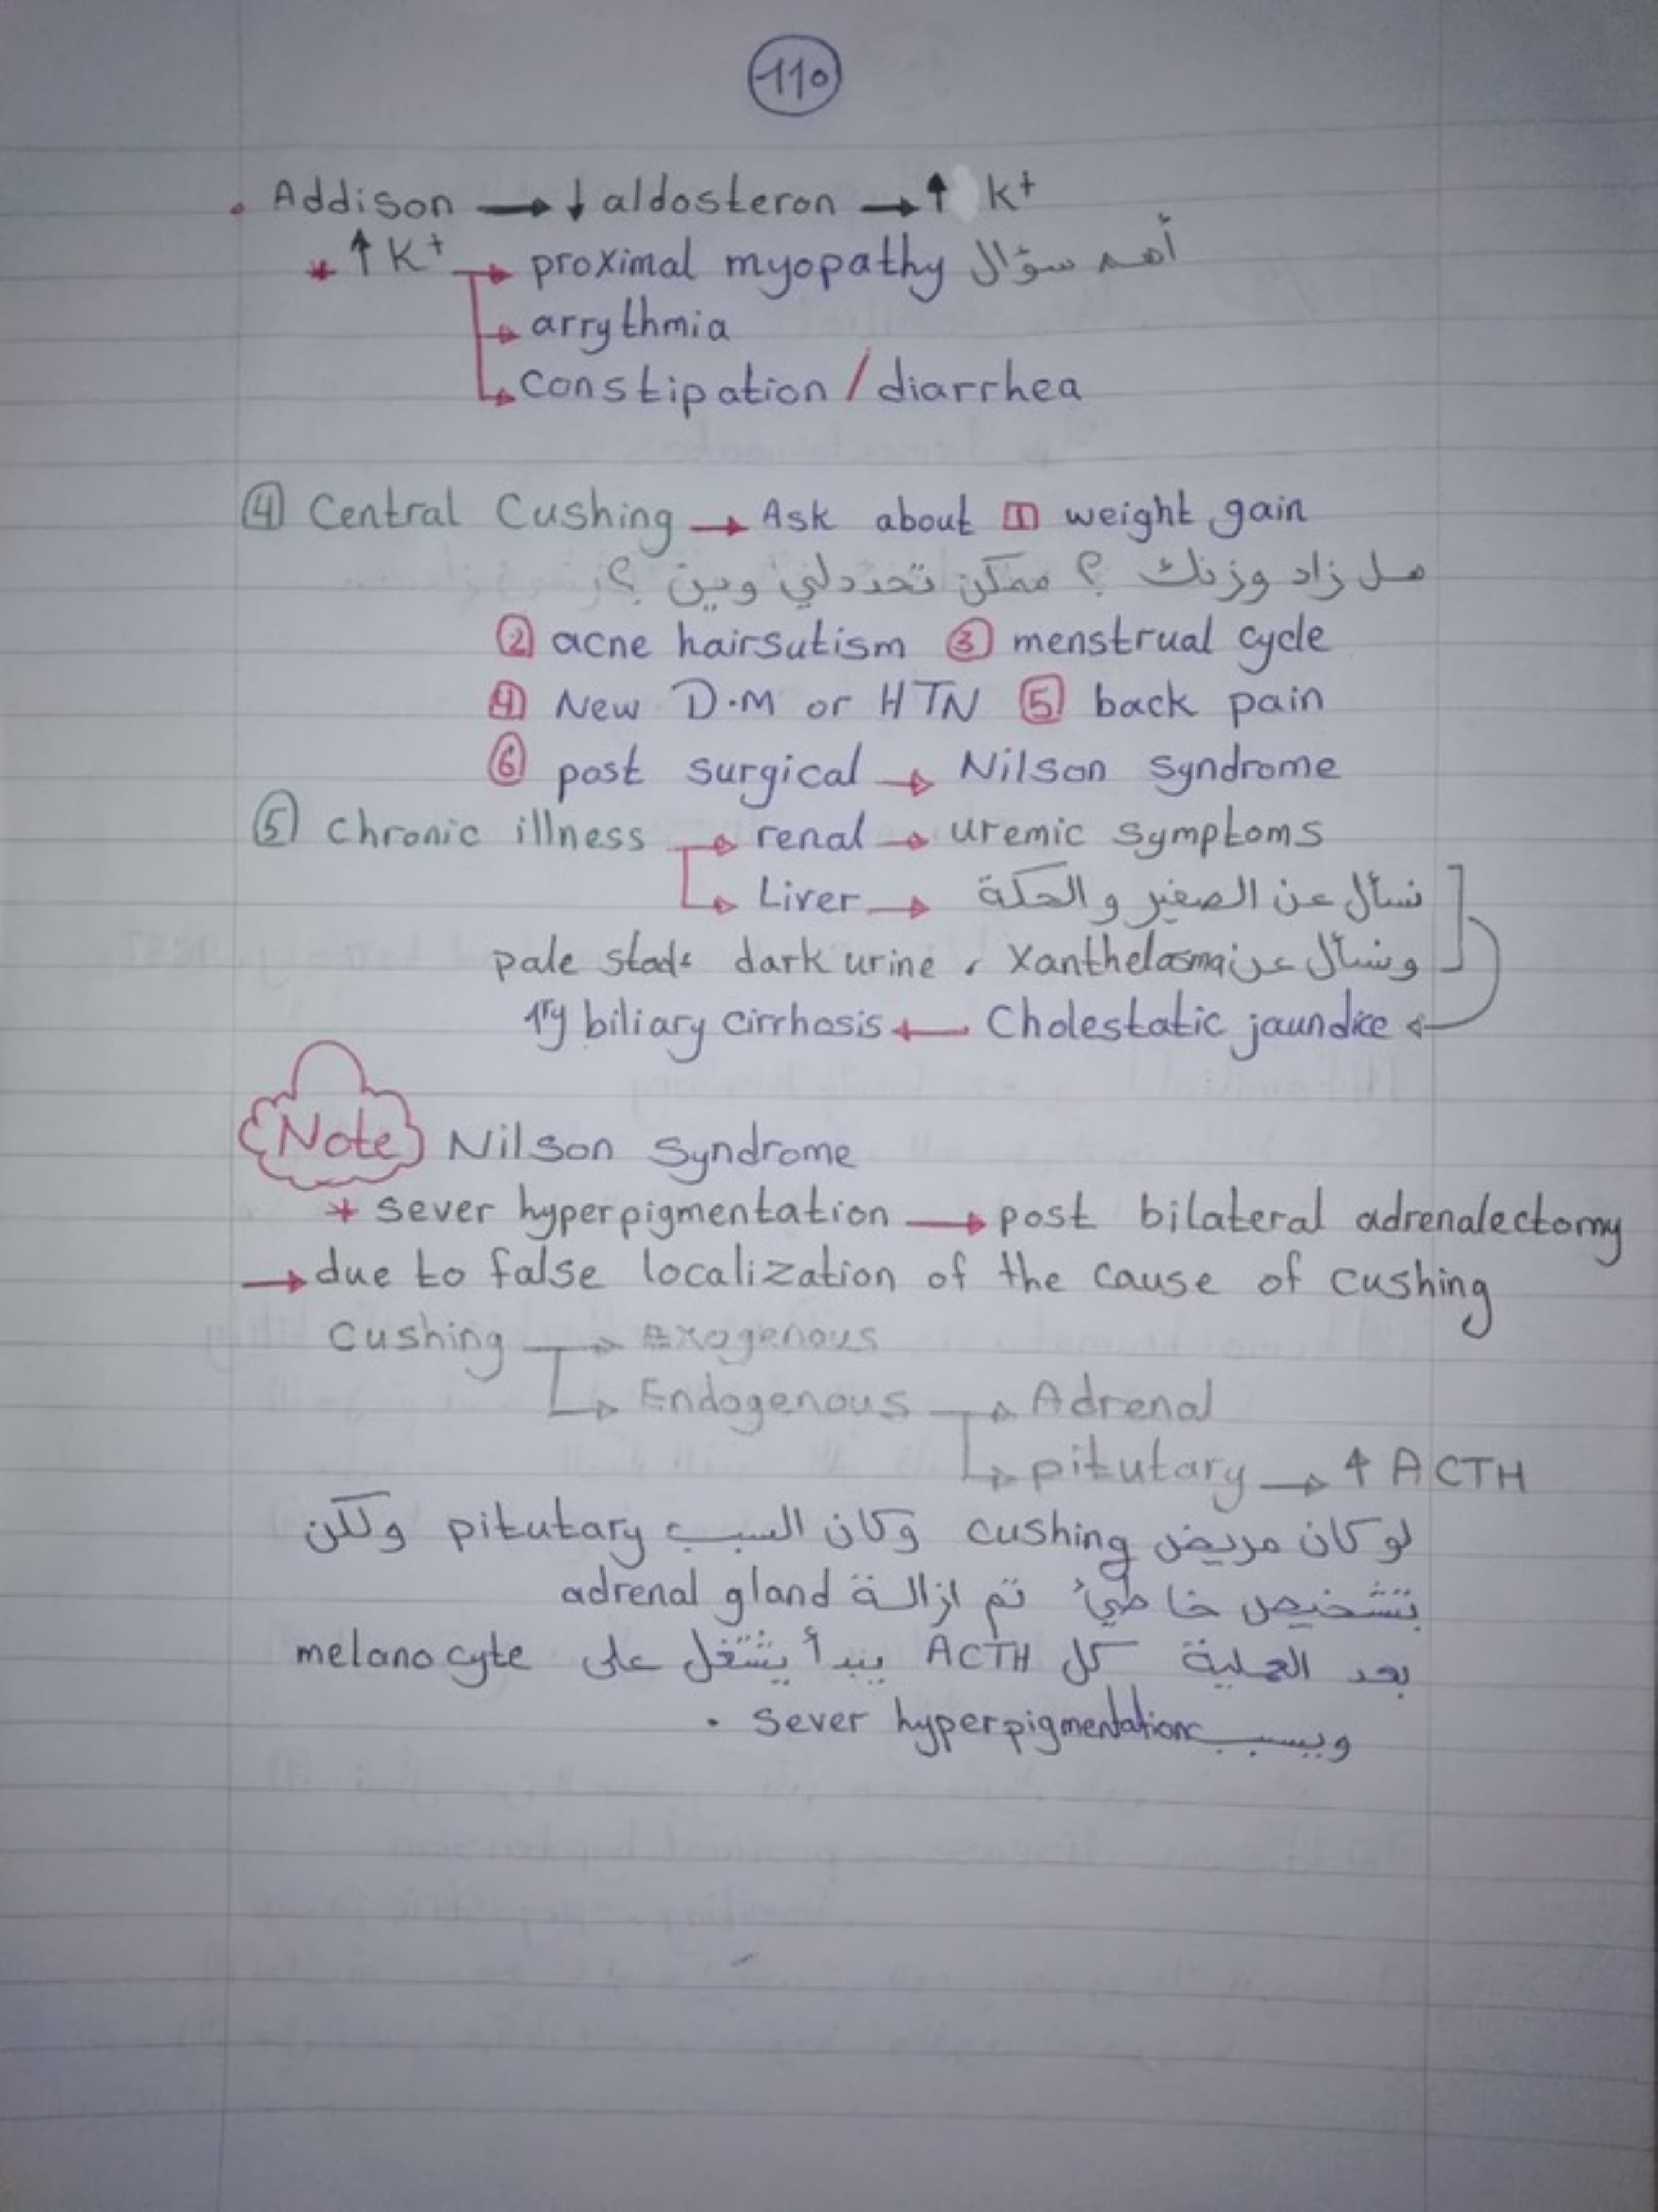 110
. Addison → ↓ aldosteron → ↑ K+
* ↑ K+ → proximal myopathy أهم سؤال
→ arrythmia
→ constipation / diarrhea
④ Central Cushing → Ask about ① weight gain
هل زاد وزنك ؟ ممكن تحددلي وين ؟
② acne hairsutism ③ menstrual cycle
④ New D.M or HTN ⑤ back pain
⑥ post surgical → Nilson syndrome
⑤ chronic illness → renal → uremic symptoms
→ Liver → نسأل عن الصفير والحكة
ونسأل عن Xanthelasma ، dark urine pale
Cholestatic jaundice → 1ry biliary cirrhosis
Note Nilson syndrome
* sever hyperpigmentation → post bilateral adrenalectomy
→ due to false localization of the cause of cushing
Cushing → Exogenous
→ Endogenous → Adrenal
→ pitutary → ↑ ACTH
لو كان مريض cushing وكان السبب pitutary ولكن
بتشخيص خاطئ تم ازالة adrenal gland
بعد العملية كل ACTH يبدأ يشتغل على melanocyte
ويسبب sever hyperpigmentation .